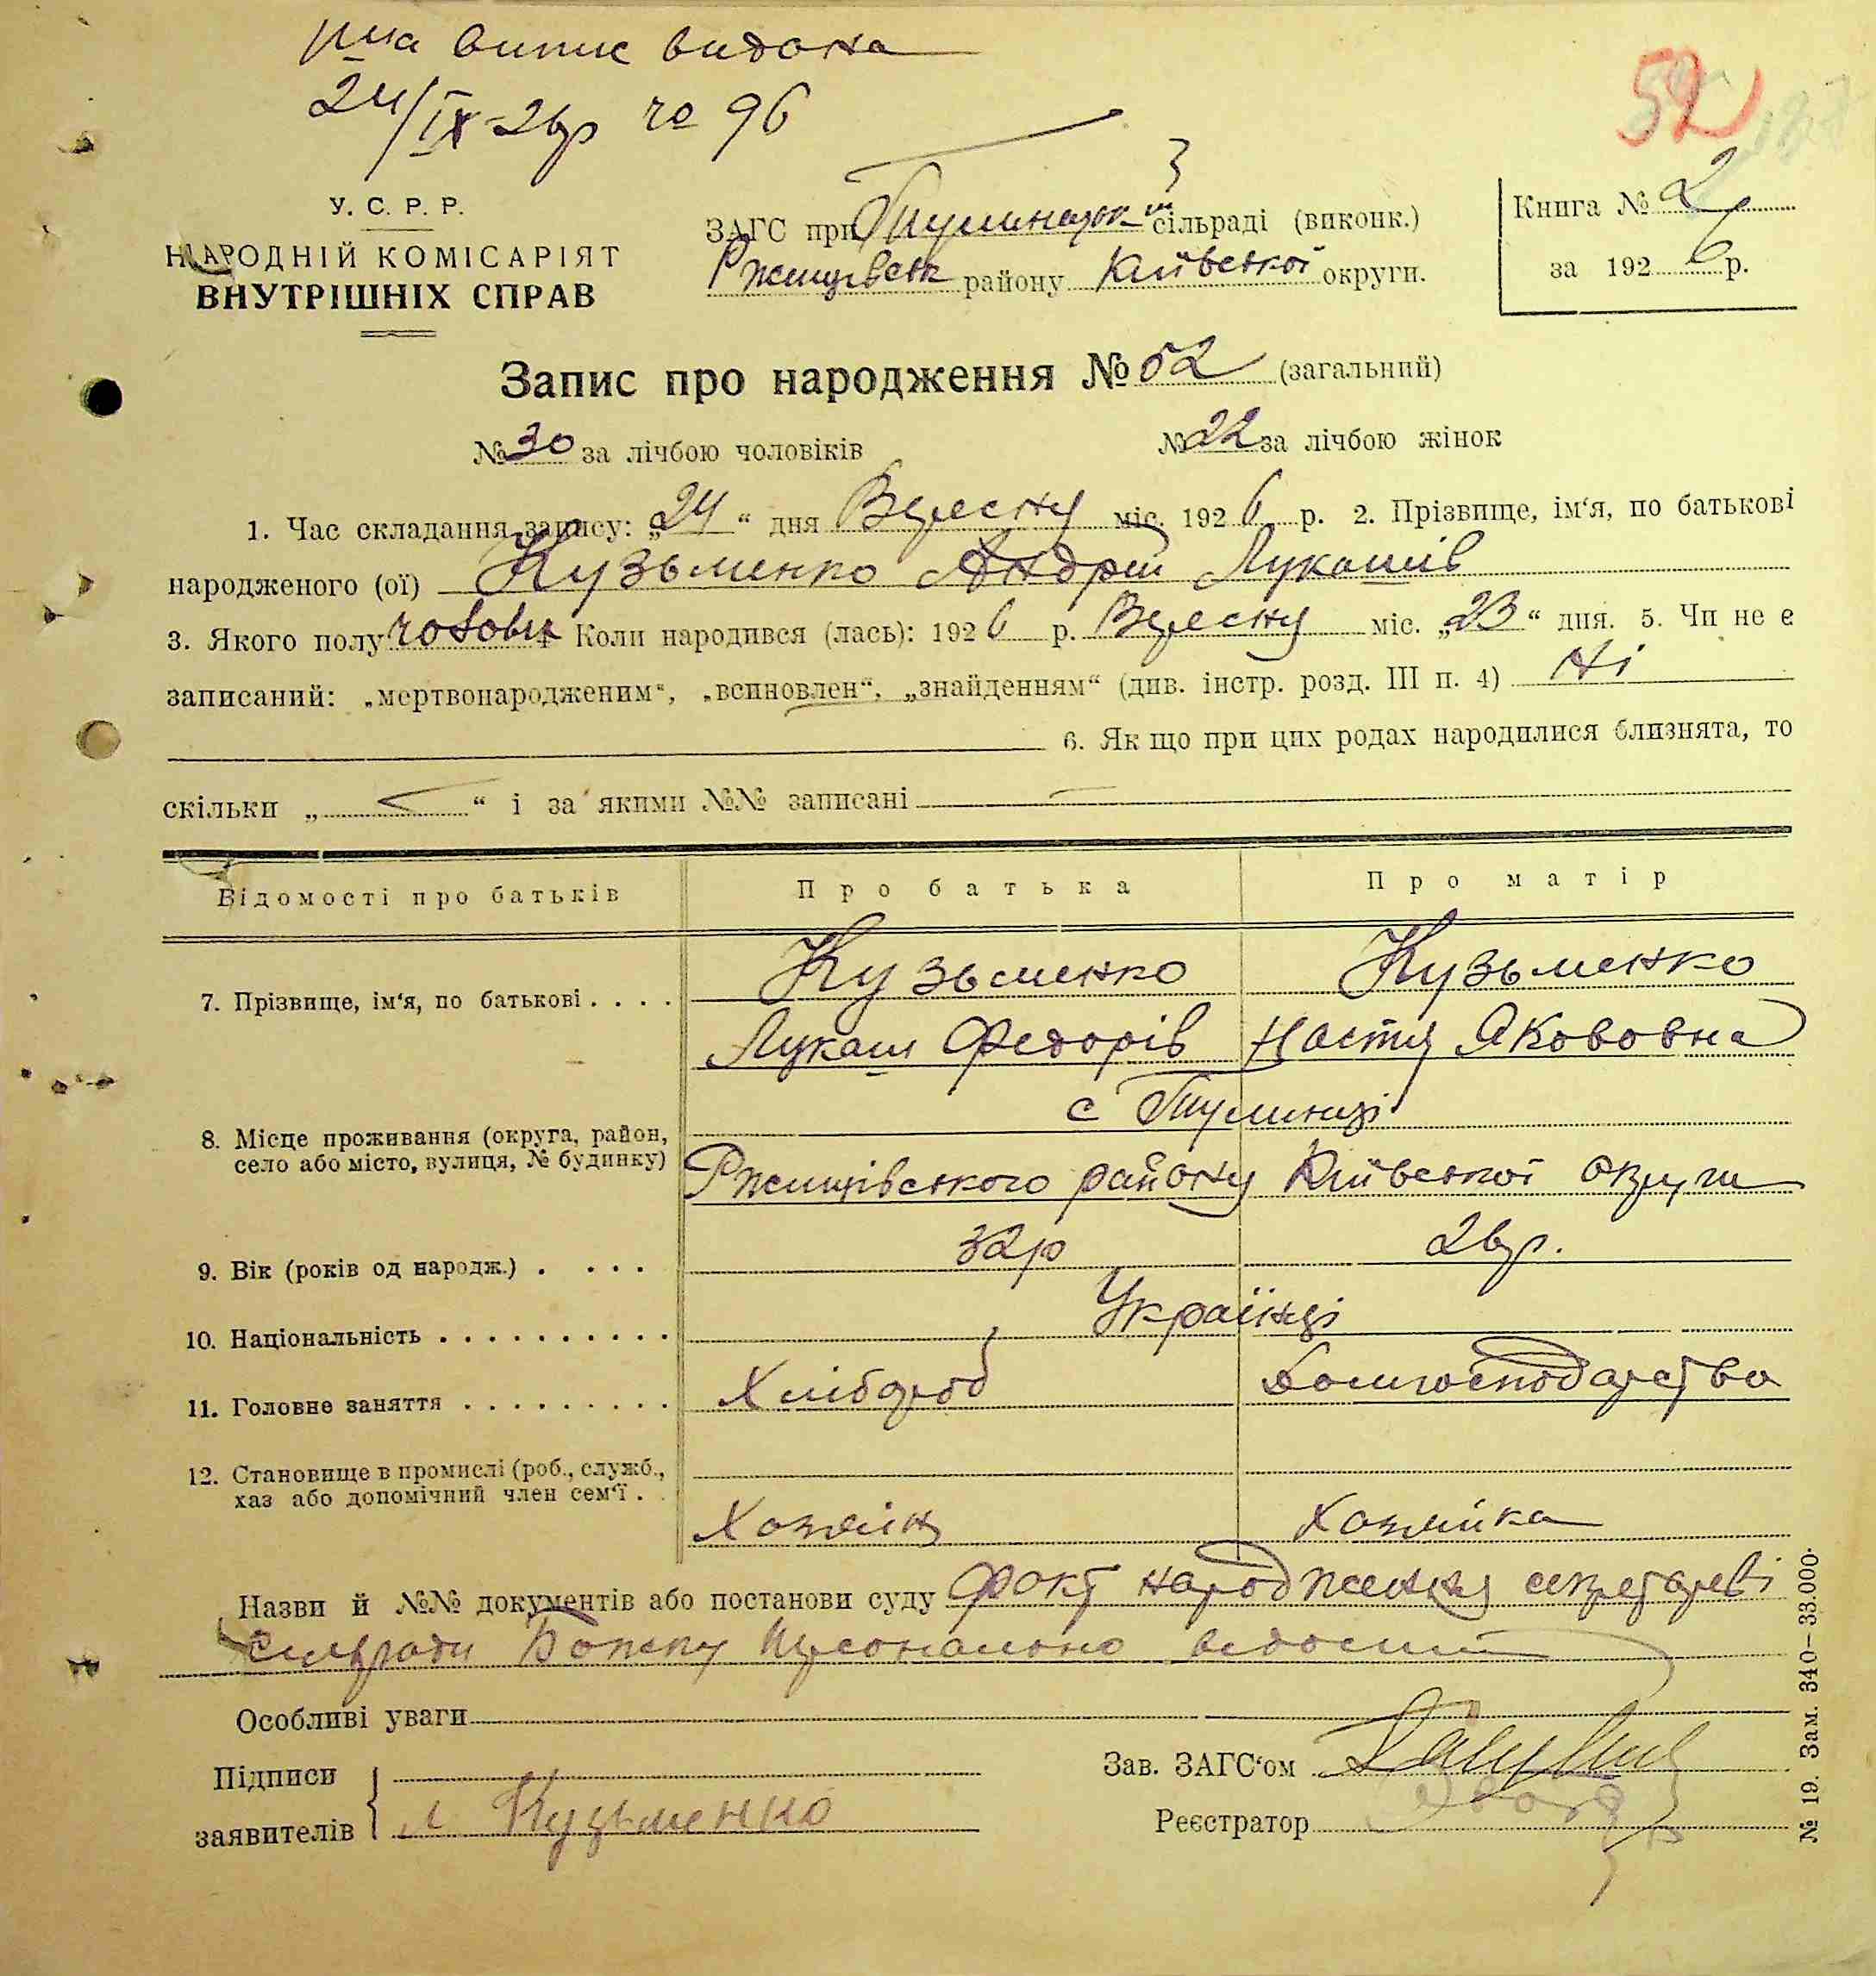 випис видана
24/IX-26р № 96
52
У. С. Р. Р.
НАРОДНІЙ КОМІСАРІЯТ
ВНУТРІШНІХ СПРАВ
ЗАГС при сільраді (виконк.)
району Київської округи.
Книга № 2
за 1926 р.
Запис про народження № 52 (загальний)
№ 30 за лічбою чоловіків № 22 за лічбою жінок
1. Час складання запису: „24“ дня Вересня міс. 1926 р. 2. Прізвище, ім‘я, по батькові
народженого (ої) Кузьменко Андрій Лукашів
3. Якого полу 4 Коли народився (лась): 1926 р. Вересня міс. „23“ дня. 5. Чи не є
записаний: „мертвонародженим“, „всиновлен“, „знайденням“ (див. інстр. розд. III п. 4) Ні
6. Як що при цих родах народилися близнята, то
скільки „ “ і за якими №№ записані
Відомості про батьків Про батька Про матір
7. Прізвище, ім‘я, по батькові . . . . Кузьменко Кузьменко
Лукаш Федорів Настя Якововна
с Тулинці
8. Місце проживання (округа, район,
село або місто, вулиця, № будинку) Ржищівського району Київської округи
9. Вік (років од народж.) . . . . 32р 26р.
10. Національність . . . . . . . . . . Українці
11. Головне заняття . . . . . . . . . Хлібороб Домгосподарства
12. Становище в промислі (роб., служб.,
хаз або допомічний член сем‘ї . .
Хозяїн Хозяйка
Назви й №№ документів або постанови суду Факт народження секретареві
сільради персонально відомий
Особливі уваги
Підписи
заявителів Л Кузьменко
Зав. ЗАГС‘ом
Реєстратор
№ 19. Зам. 340–33.000.